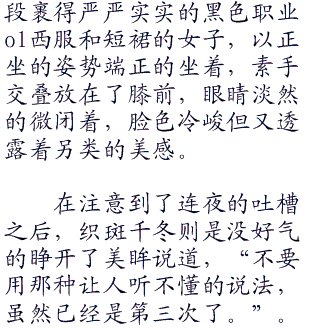 段裹得严严实实的黑色职业
ol西服和短裙的女子，以正
坐的姿势端正的坐着，素手
交叠放在了膝前，眼睛淡然
的微闭着，脸色冷峻但又透
露着另类的美感。
在注意到了连夜的吐槽
之后，织斑千冬则是没好气
的睁开了美眸说道，“不要
用那种让人听不懂的说法，
虽然已经是第三次了。”。